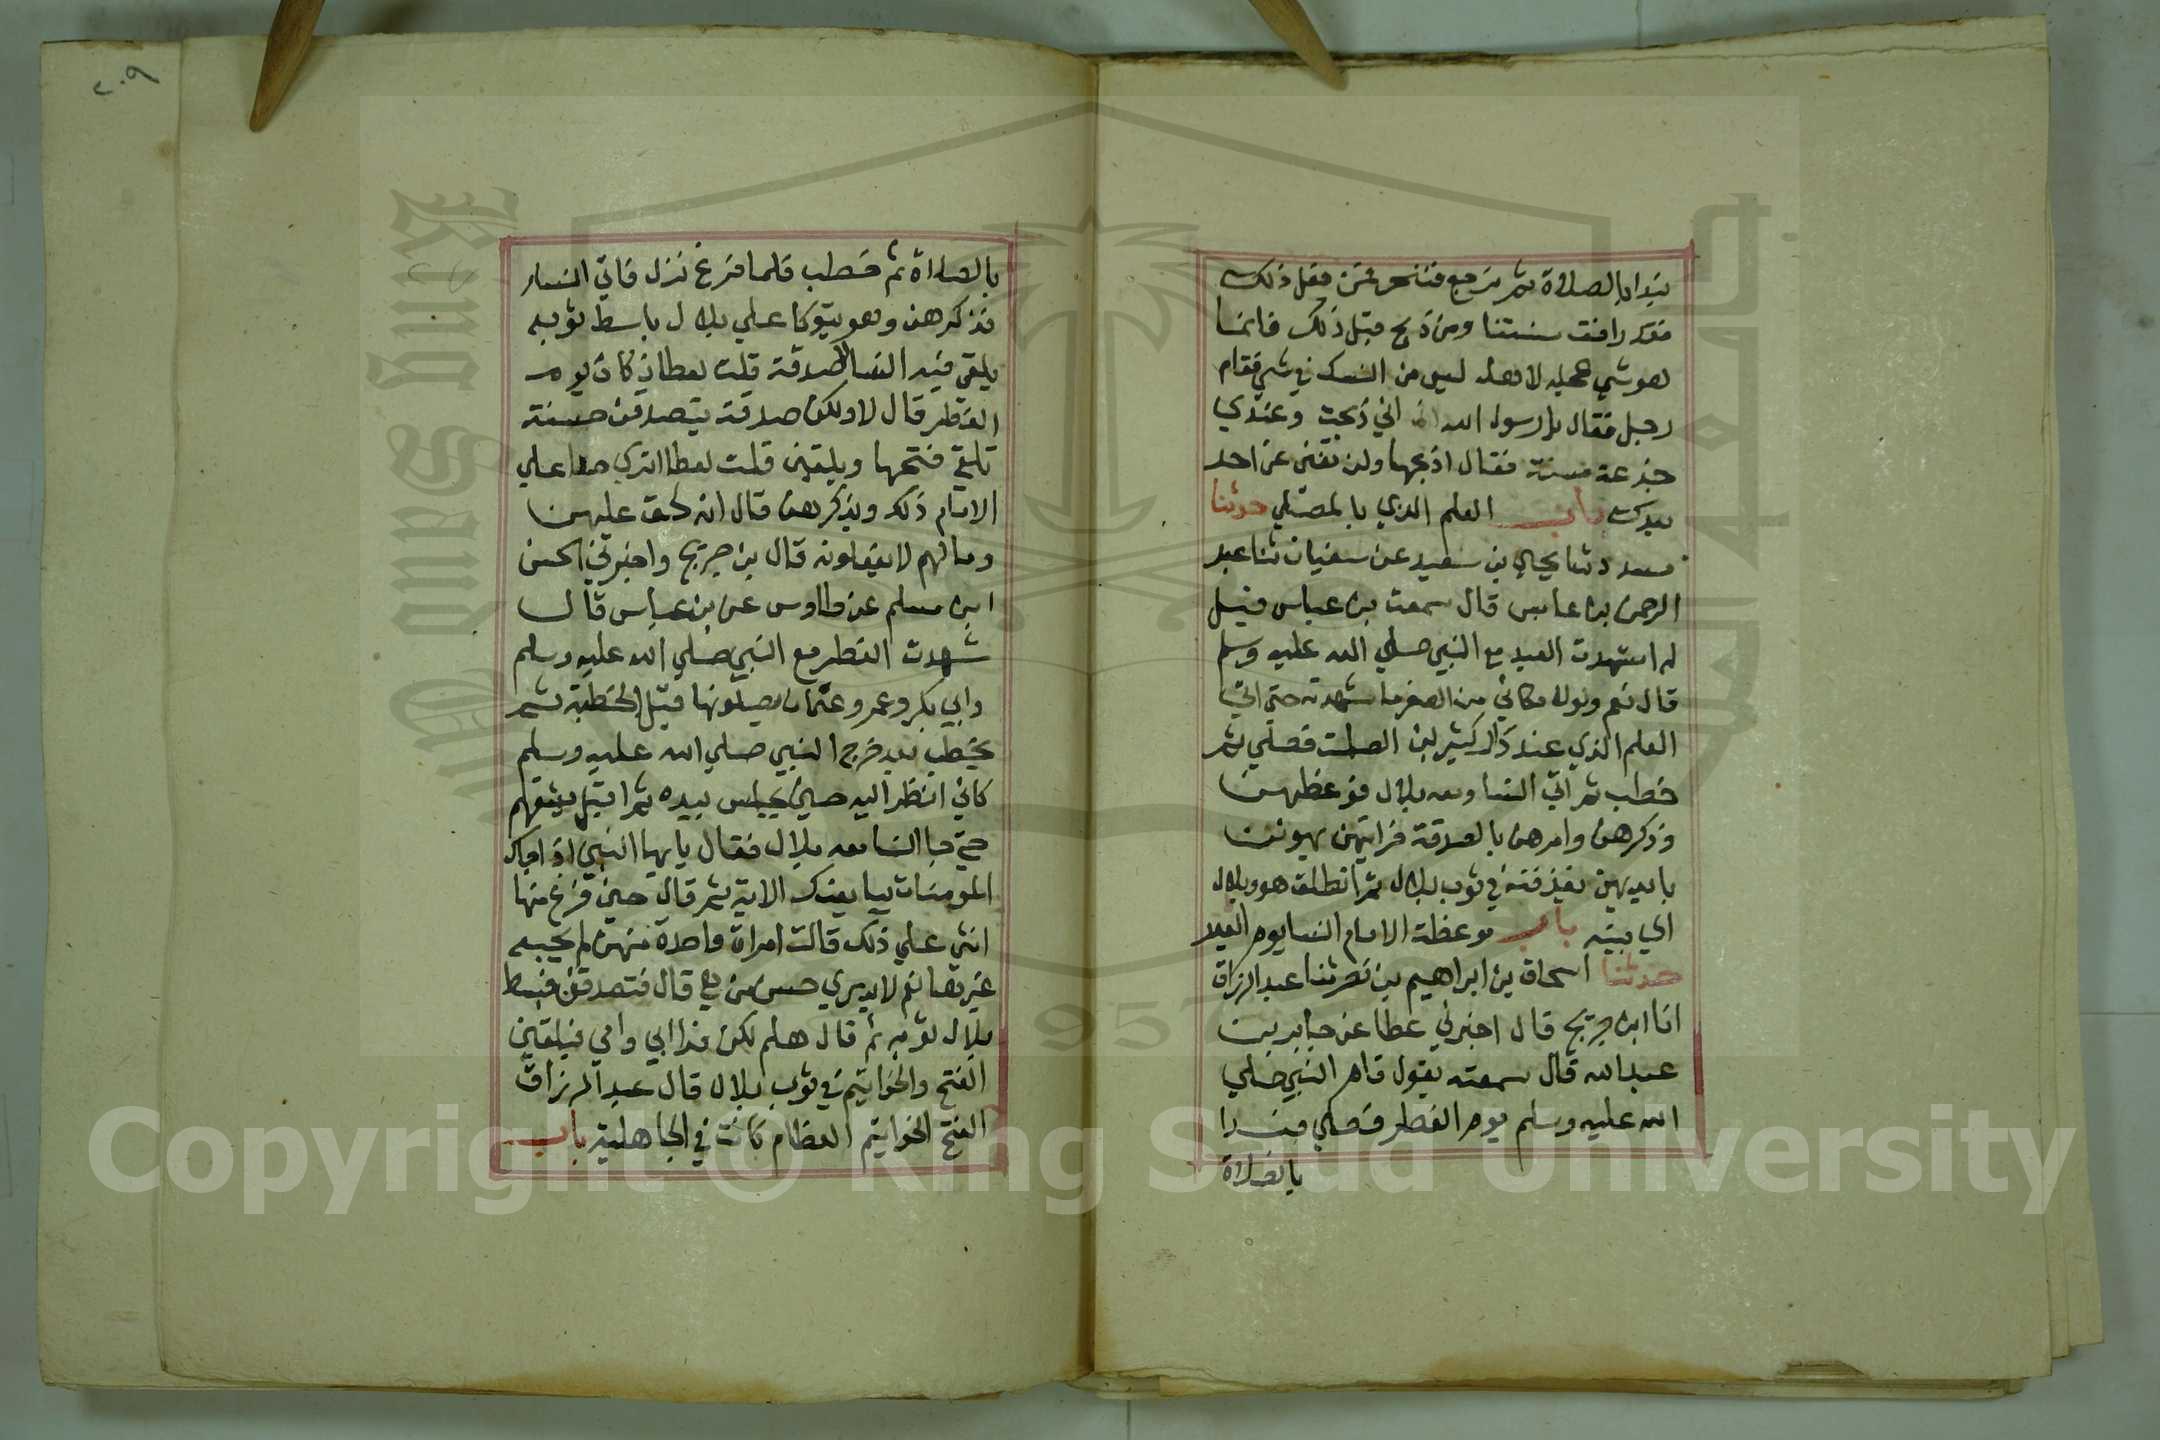 نبدا بالصلاة ثم نرجع فننحر فمن فعل ذلك
فقد وافق سنتنا ومن ذبح قبل ذلك فانما
هو شي عجله لاهله ليس من النسك في شي فقام
رجل فقال يا رسول الله اني ذبحت وعندي
جذعة مسنة فقال اذبحها ولن تفي عن احد
بعدك باب العلم الذي بالمصلي حدثنا
مسدد ثنا يحيي بن سعيد عن سفيان ثنا عبد
الرحمن بن عابس قال سمعت بن عباس قيل
له اشهدت العيد مع النبي صلي الله عليه وسلم
قال نعم ولولا مكاني من الصغر ما شهدته حتى اتي
العلم الذي عند دار كثير بن الصلت فصلي ثم
خطب ثم اتي النسا ومعه بلال فوعظهن
وذكرهن وامرهن بالصدقة فرايتهن يهوين
بايديهن يقذفنه في ثوب بلال ثم انطلق هو وبلال
الي بيته باب موعظة الامام النسا يوم العيد
حدثنا اسحاق بن ابراهيم بن نصر ثنا عبد الرزاق
انا ابن جريج قال اخبرني عطا عن جابر بن
عبد الله قال سمعته يقول قام النبي صلي
الله عليه وسلم يوم الفطر فصلي فبدا
بالصلاة
٢٠٩
بالصلاة ثم خطب فلما فرغ نزل فاتي النساء
فذكرهن وهو يتوكا علي بلال باسط ثوبه
يلقي فيه النسا الصدقة قلت لعطا زكاة يوم
الفطر قال لا ولكن صدقة يتصدقن حينئذ
تلقي فتخها ويلقين قلت لعطا اتري حقا علي
الامام ذلك ويذكرهن قال انه لحق عليهن
وما لهم لا يفعلونه قال بن جريج واخبرني الحسن
ابن مسلم عن طاووس عن بن عباس قال
شهدت الفطر مع النبي صلي الله عليه وسلم
وابي بكر وعمر وعثمان يصلونها قبل الخطبة ثم
يخطب بعد خرج النبي صلي الله عليه وسلم
كاني انظر اليه حين يجلس بيده ثم اقبل يشقهم
حتي جا النسا معه بلال فقال يايها النبي اذا جاك
المومنات يبايعنك الاية ثم قال حين فرغ منها
انتن علي ذلك قالت امراة واحدة منهن لم يجبه
غيرها نعم لا يدري حسن من هي قال فتصدقن فبسط
بلال ثوبه ثم قال هلم لكن فدا ابي وامي فيلقين
الفتخ والخواتيم في ثوب بلال قال عبد الرزاق
الفتخ الخواتيم العظام كانت في الجاهلية باب
King Saud University
1957
Copyright © King Saud University